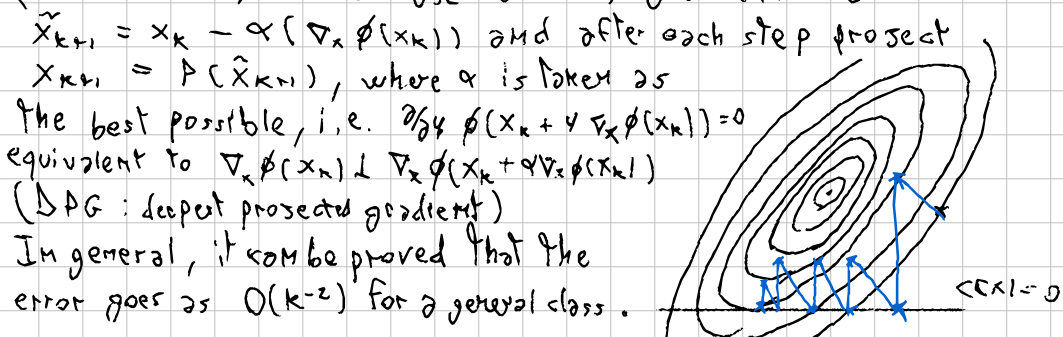 x̃ₖ₊₁ = xₖ − α(∇ₓ ϕ(xₖ)) and after each step project
xₖ₊₁ = P(x̃ₖ₊₁), where α is taken as
the best possible, i.e. ∂/∂ψ ϕ(xₖ + ψ ∇ₓϕ(xₖ)) = 0
equivalent to ∇ₓϕ(xₖ) ⊥ ∇ₓϕ(xₖ + α∇ₓϕ(xₖ))
(DPG : deepest projected gradient)
In general, it can be proved that the
error goes as O(k⁻²) for a general class .
C(x) = 0